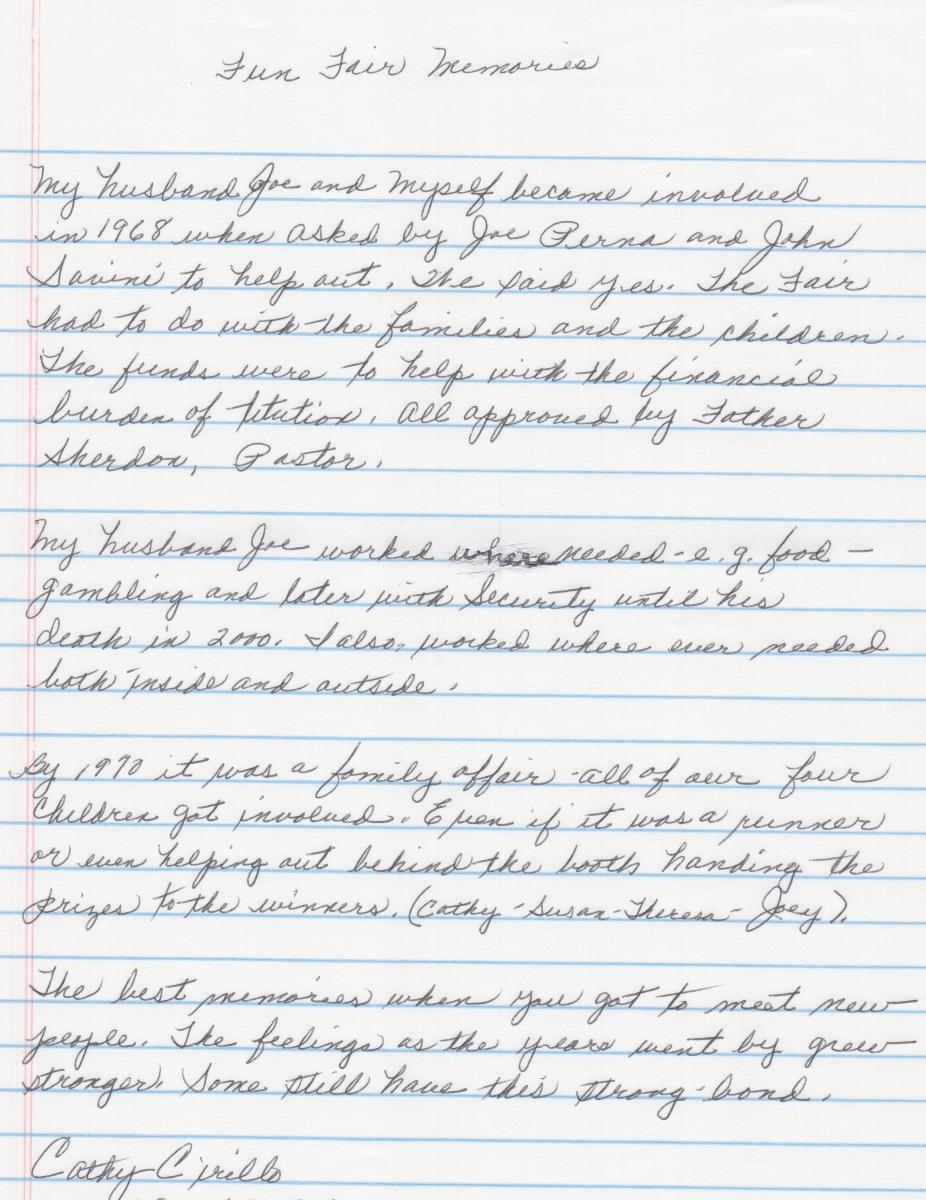 Fun Fair Memories
My husband Joe and Myself became involved
in 1968 when asked by Joe Perna and John
Savini to help out. We said yes. The Fair
had to do with the families and the children.
The funds were to help with the financial
burden of titution. All approved by Father
Sherdon, Pastor.
My husband Joe worked where needed - e.g. food -
gambling and later with Security until his
death in 2000. I also, worked where ever needed
both inside and outside.
By 1970 it was a family affair - all of our four
children got involved. Even if it was a runner
or even helping out behind the booth handing the
prizes to the winners. (Cathy - Susan - Theresa - Joey).
The best memories when you got to meet new
people. The feelings as the years went by grew
stronger. Some still have this strong - bond.
Cathy Cirillo